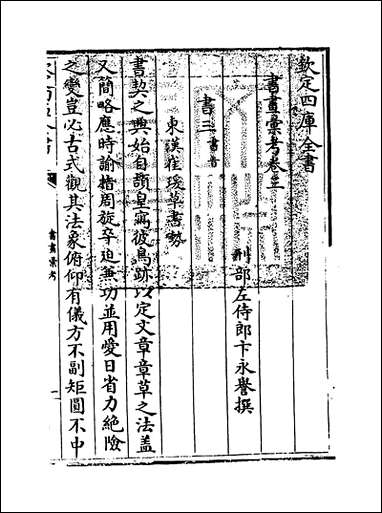 欽定四庫全書
書畫彙考卷三
刑部左侍郎卞永譽撰
書三 書旨
東漢崔瑗草書勢
書契之興始自頡皇寫彼鳥跡以定文章章草之法蓋
又簡略應時諭指周旋卒迫兼功並用愛日省力絶險
之變豈必古式觀其法象俯仰有儀方不副矩圓不中
書畫彙考